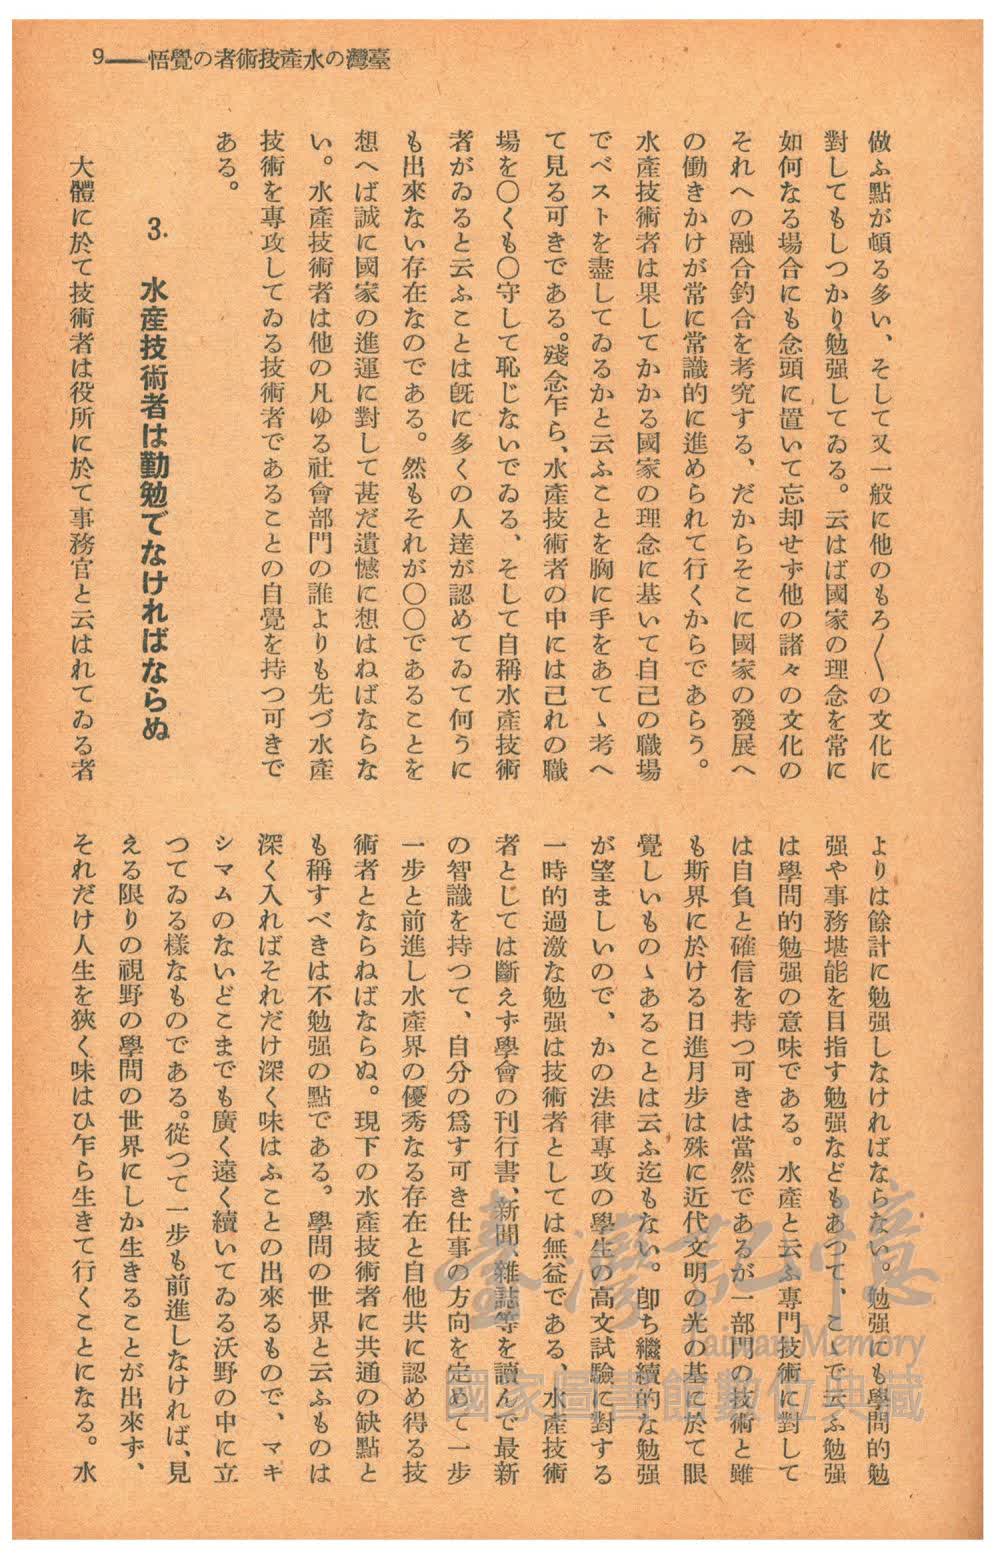 9――悟覺の者術技產水の灣臺
倣ふ點が頗る多い、そして又一般に他のもろ〱の文化に
對してもしつかり勉强してゐる。云はば國家の理念を常に
如何なる場合にも念頭に置いて忘却せず他の諸々の文化の
それへの融合釣合を考究する、だからそこに國家の發展へ
の働きかけが常に常識的に進められて行くからであらう。
水產技術者は果してかかる國家の理念に基いて自己の職場
でベストを盡してゐるかと云ふことを胸に手をあてゝ考へ
て見る可きである。殘念乍ら、水產技術者の中には己れの職
場を〇くも〇守して恥じないでゐる、そして自稱水產技術
者がゐると云ふことは旣に多くの人達が認めてゐて何うに
も出來ない存在なのである。然もそれが〇〇であることを
想へば誠に國家の進運に對して甚だ遺憾に想はねばならな
い。水產技術者は他の凡ゆる社會部門の誰よりも先づ水產
技術を專攻してゐる技術者であることの自覺を持つ可きで
ある。
3. 水産技術者は勤勉でなければならぬ
大體に於て技術者は役所に於て事務官と云はれてゐる者
よりは餘計に勉强しなければならない。勉强にも學問的勉
强や事務堪能を目指す勉强などもあつて、こゝで云ふ勉强
は學問的勉强の意味である。水產と云ふ專門技術に對して
は自負と確信を持つ可きは當然であるが一部門の技術と雖
も斯界に於ける日進月步は殊に近代文明の光の基に於て眼
覺しいものゝあることは云ふ迄もない。卽ち繼續的な勉强
が望ましいので、かの法律專攻の學生の高文試驗に對する
一時的過激な勉强は技術者としては無益である、水產技術
者としては斷えず學會の刊行書、新聞、雜誌等を讀んで最新
の智識を持つて、自分の爲す可き仕事の方向を定めて一步
一步と前進し水產界の優秀なる存在と自他共に認め得る技
術者とならねばならぬ。現下の水產技術者に共通の缺點と
も稱すべきは不勉强の點である。學問の世界と云ふものは
深く入ればそれだけ深く味はふことの出來るもので、マキ
シマムのないどこまでも廣く遠く續いてゐる沃野の中に立
つてゐる樣なものである。從つて一步も前進しなければ、見
える限りの視野の學問の世界にしか生きることが出來ず、
それだけ人生を狹く味はひ乍ら生きて行くことになる。水
臺灣記憶
Taiwan Memory
國家圖書館數位典藏